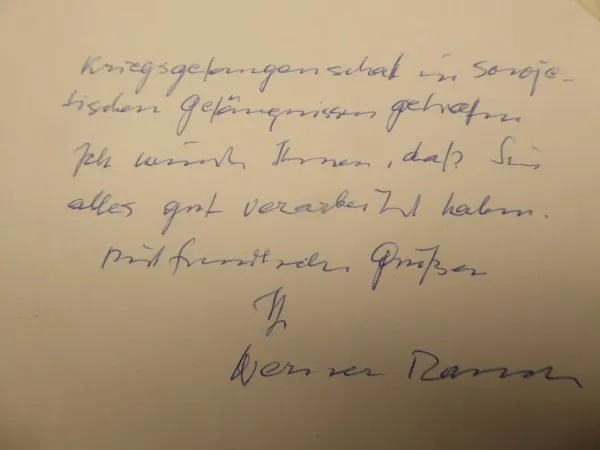 Kriegsgefangenschaft in sowje-
tischen Gefängnissen getroffen
Ich wünsche Ihnen, daß Sie
alles gut verarbeitet haben.
Mit freundlichen Grüßen
Werner